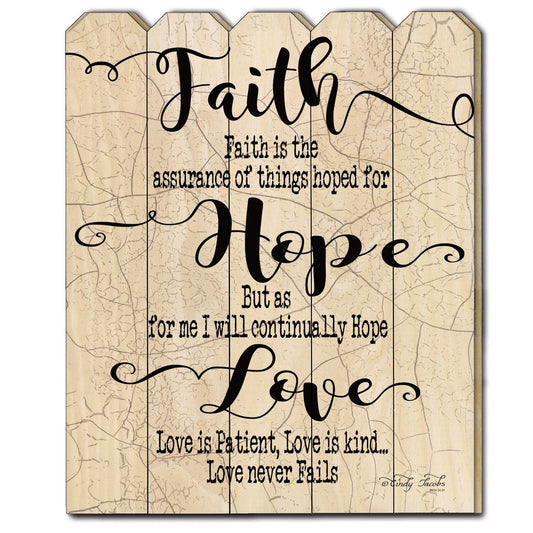 Faith
Faith is the
assurance of things hoped for
Hope
But as
for me I will continually Hope
Love
Love is Patient, Love is kind...
Love never Fails
©Cindy Jacobs